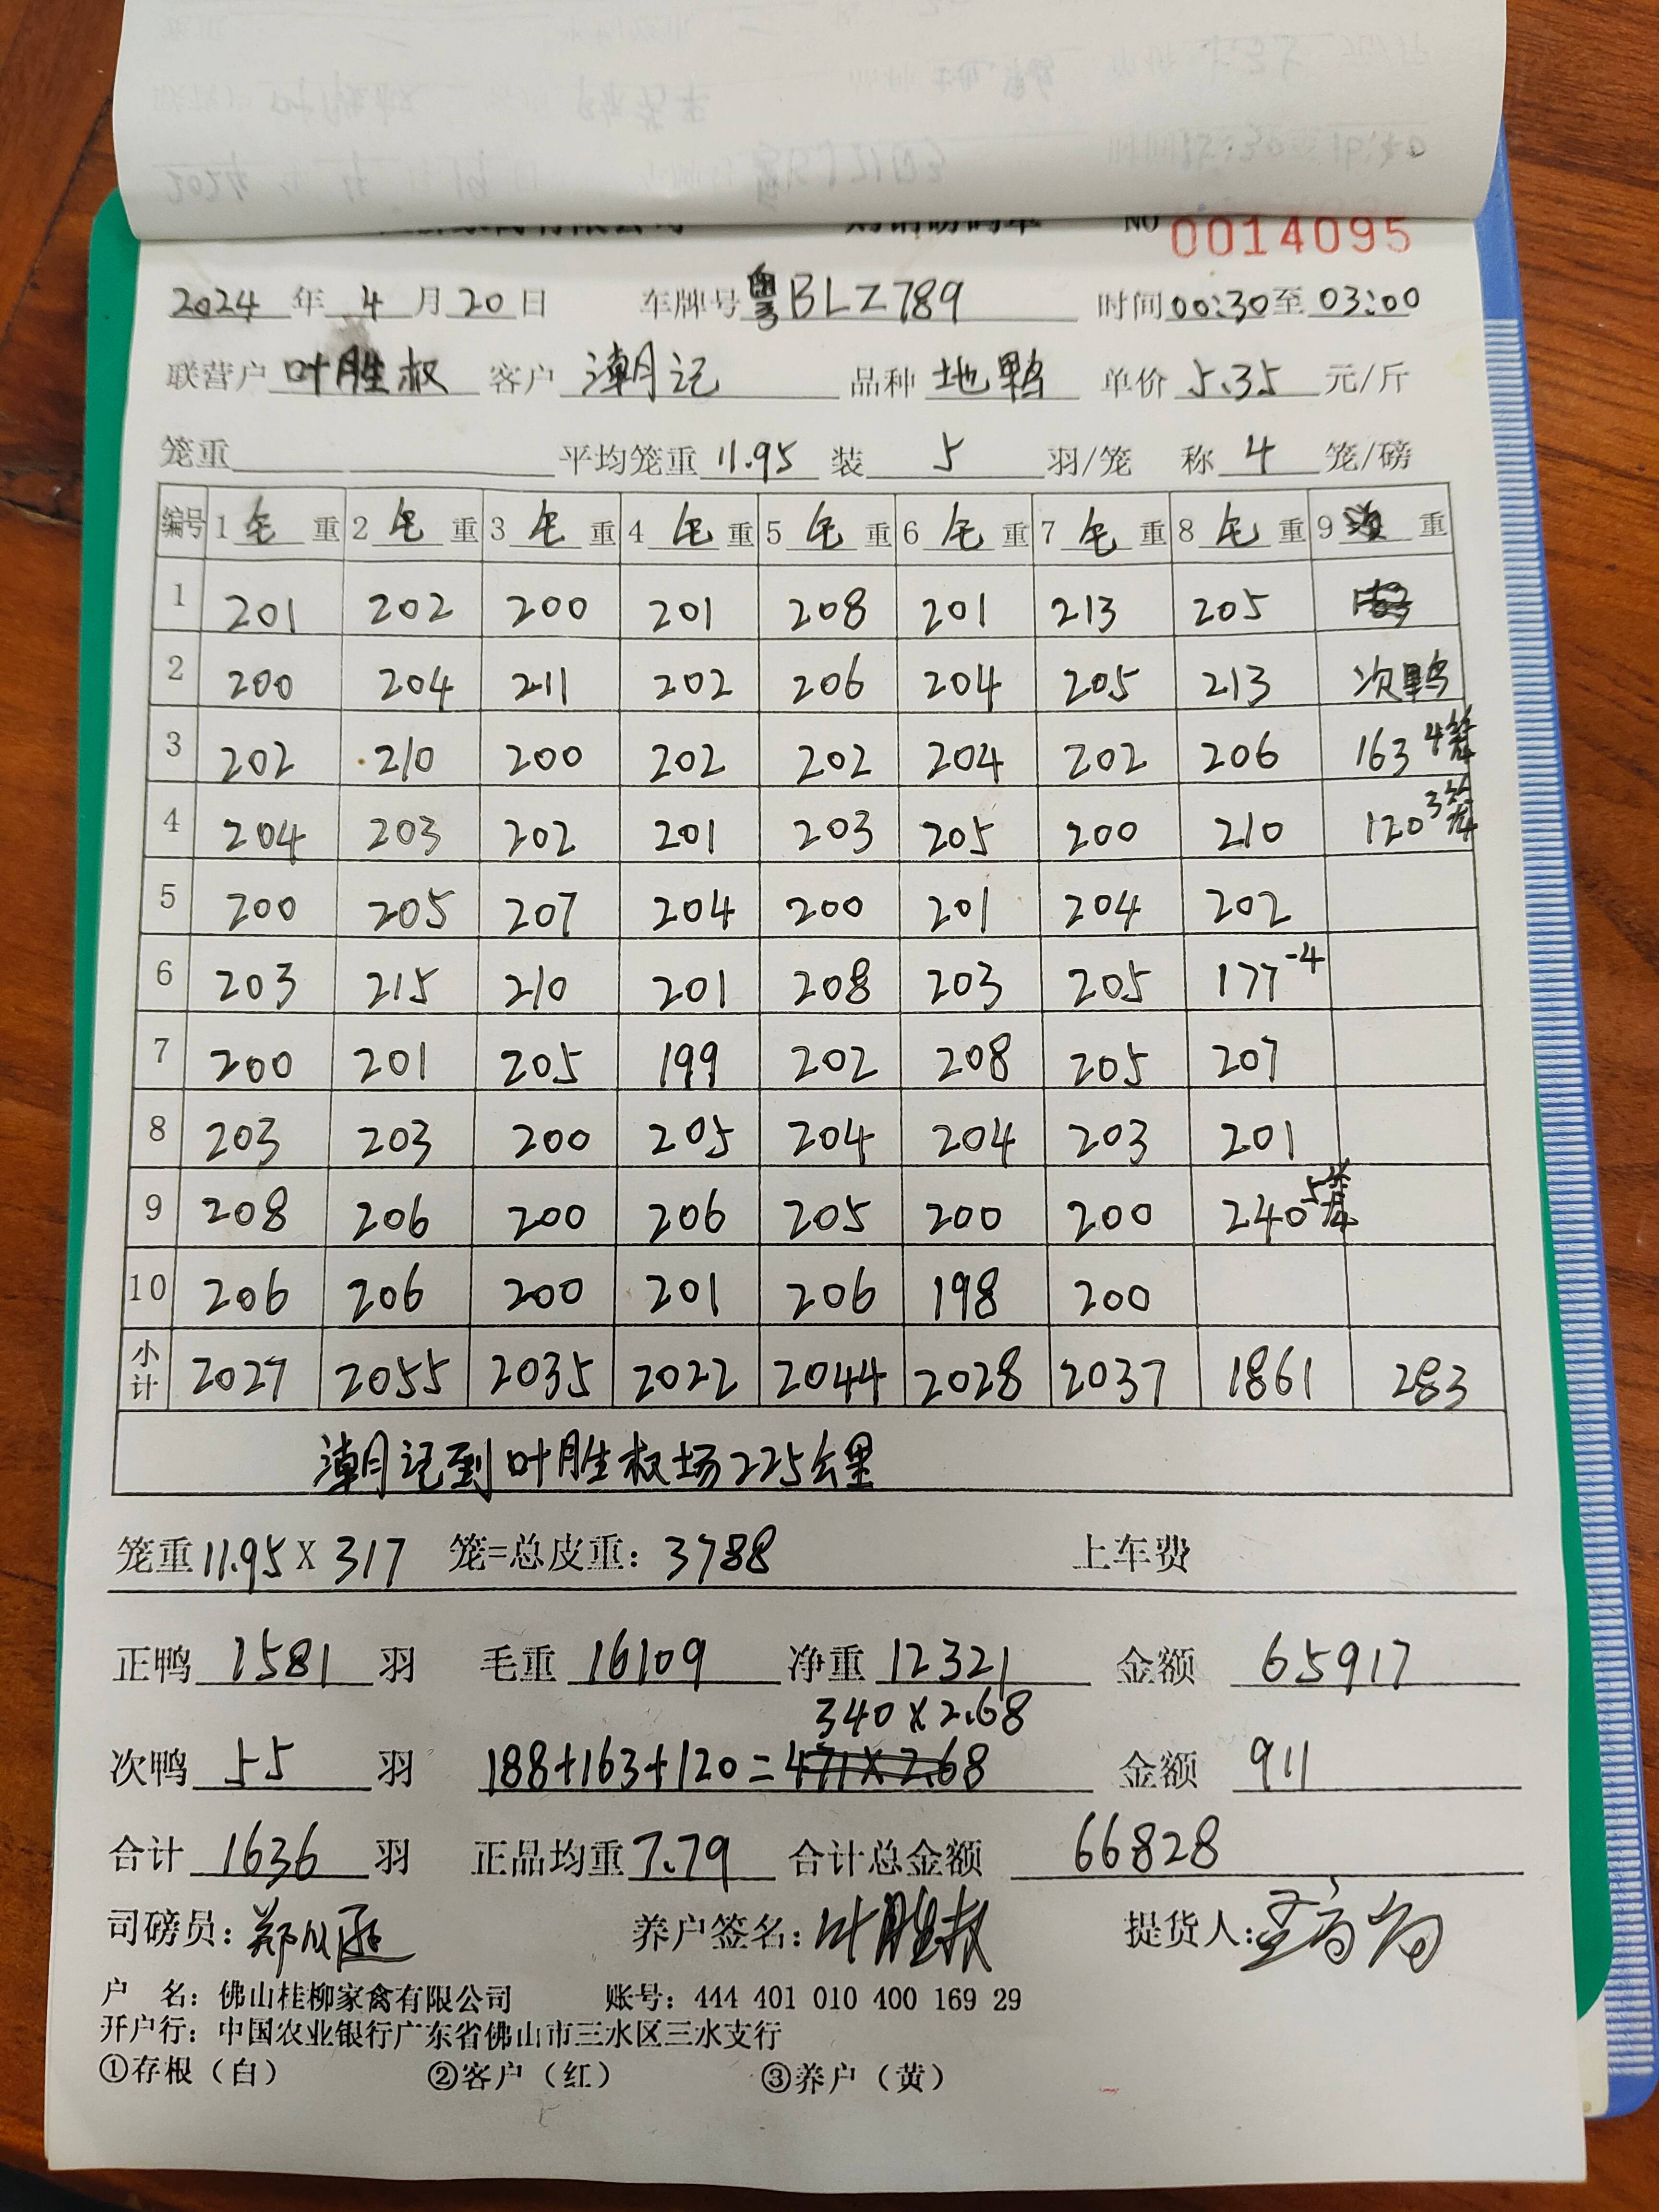 NO 0014095
2024 年 4 月 20 日 车牌号 粤BLZ789 时间 00:30 至 03:00
联营户 叶胜权 客户 潮记 品种 地鸭 单价 5.35 元/斤
笼重 平均笼重 11.95 装 5 羽/笼 称 4 笼/磅
编号 1 毛 重 2 毛 重 3 毛 重 4 毛 重 5 毛 重 6 毛 重 7 毛 重 8 毛 重 9 重
1 201 202 200 201 208 201 213 205
2 200 204 211 202 206 204 205 213 次鸭
3 202 210 200 202 202 204 202 206 163 4笼
4 204 203 202 201 203 205 200 210 120 3笼
5 200 205 207 204 200 201 204 202
6 203 215 210 201 208 203 205 177-4
7 200 201 205 199 202 208 205 207
8 203 203 200 205 204 204 203 201
9 208 206 200 206 205 200 200 240 5笼
10 206 206 200 201 206 198 200
小计 2027 2055 2035 2022 2044 2028 2037 1861 283
潮记到叶胜权场225公里
笼重 11.95 X 317 笼=总皮重: 3788 上车费
正鸭 1581 羽 毛重 16109 净重 12321 金额 65917
340 x 2.68
次鸭 55 羽 188+163+120=471x2.68 金额 911
合计 1636 羽 正品均重 7.79 合计总金额 66828
司磅员: 养户签名: 叶胜权 提货人:
户 名: 佛山桂柳家禽有限公司 账号: 444 401 010 400 169 29
开户行: 中国农业银行广东省佛山市三水区三水支行
①存根（白） ②客户（红） ③养户（黄）